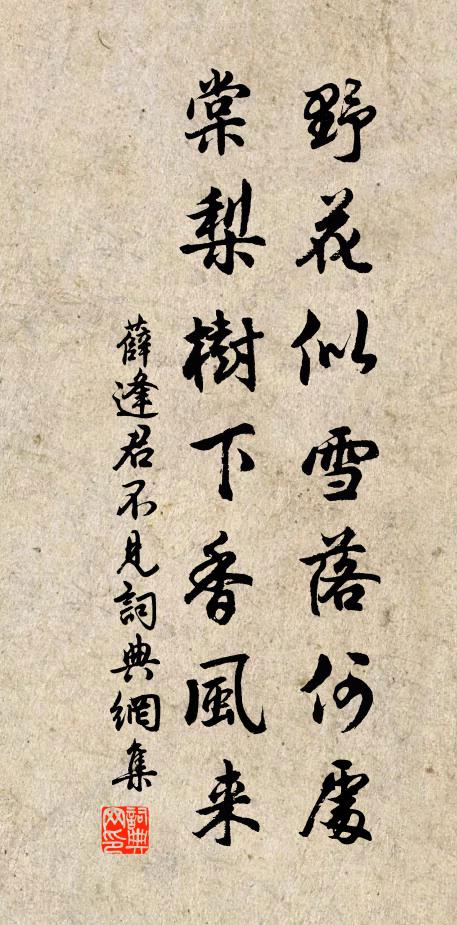 野花似雪落何處
棠梨樹下香風来
薛逢君不見詞典網集
詞典网印